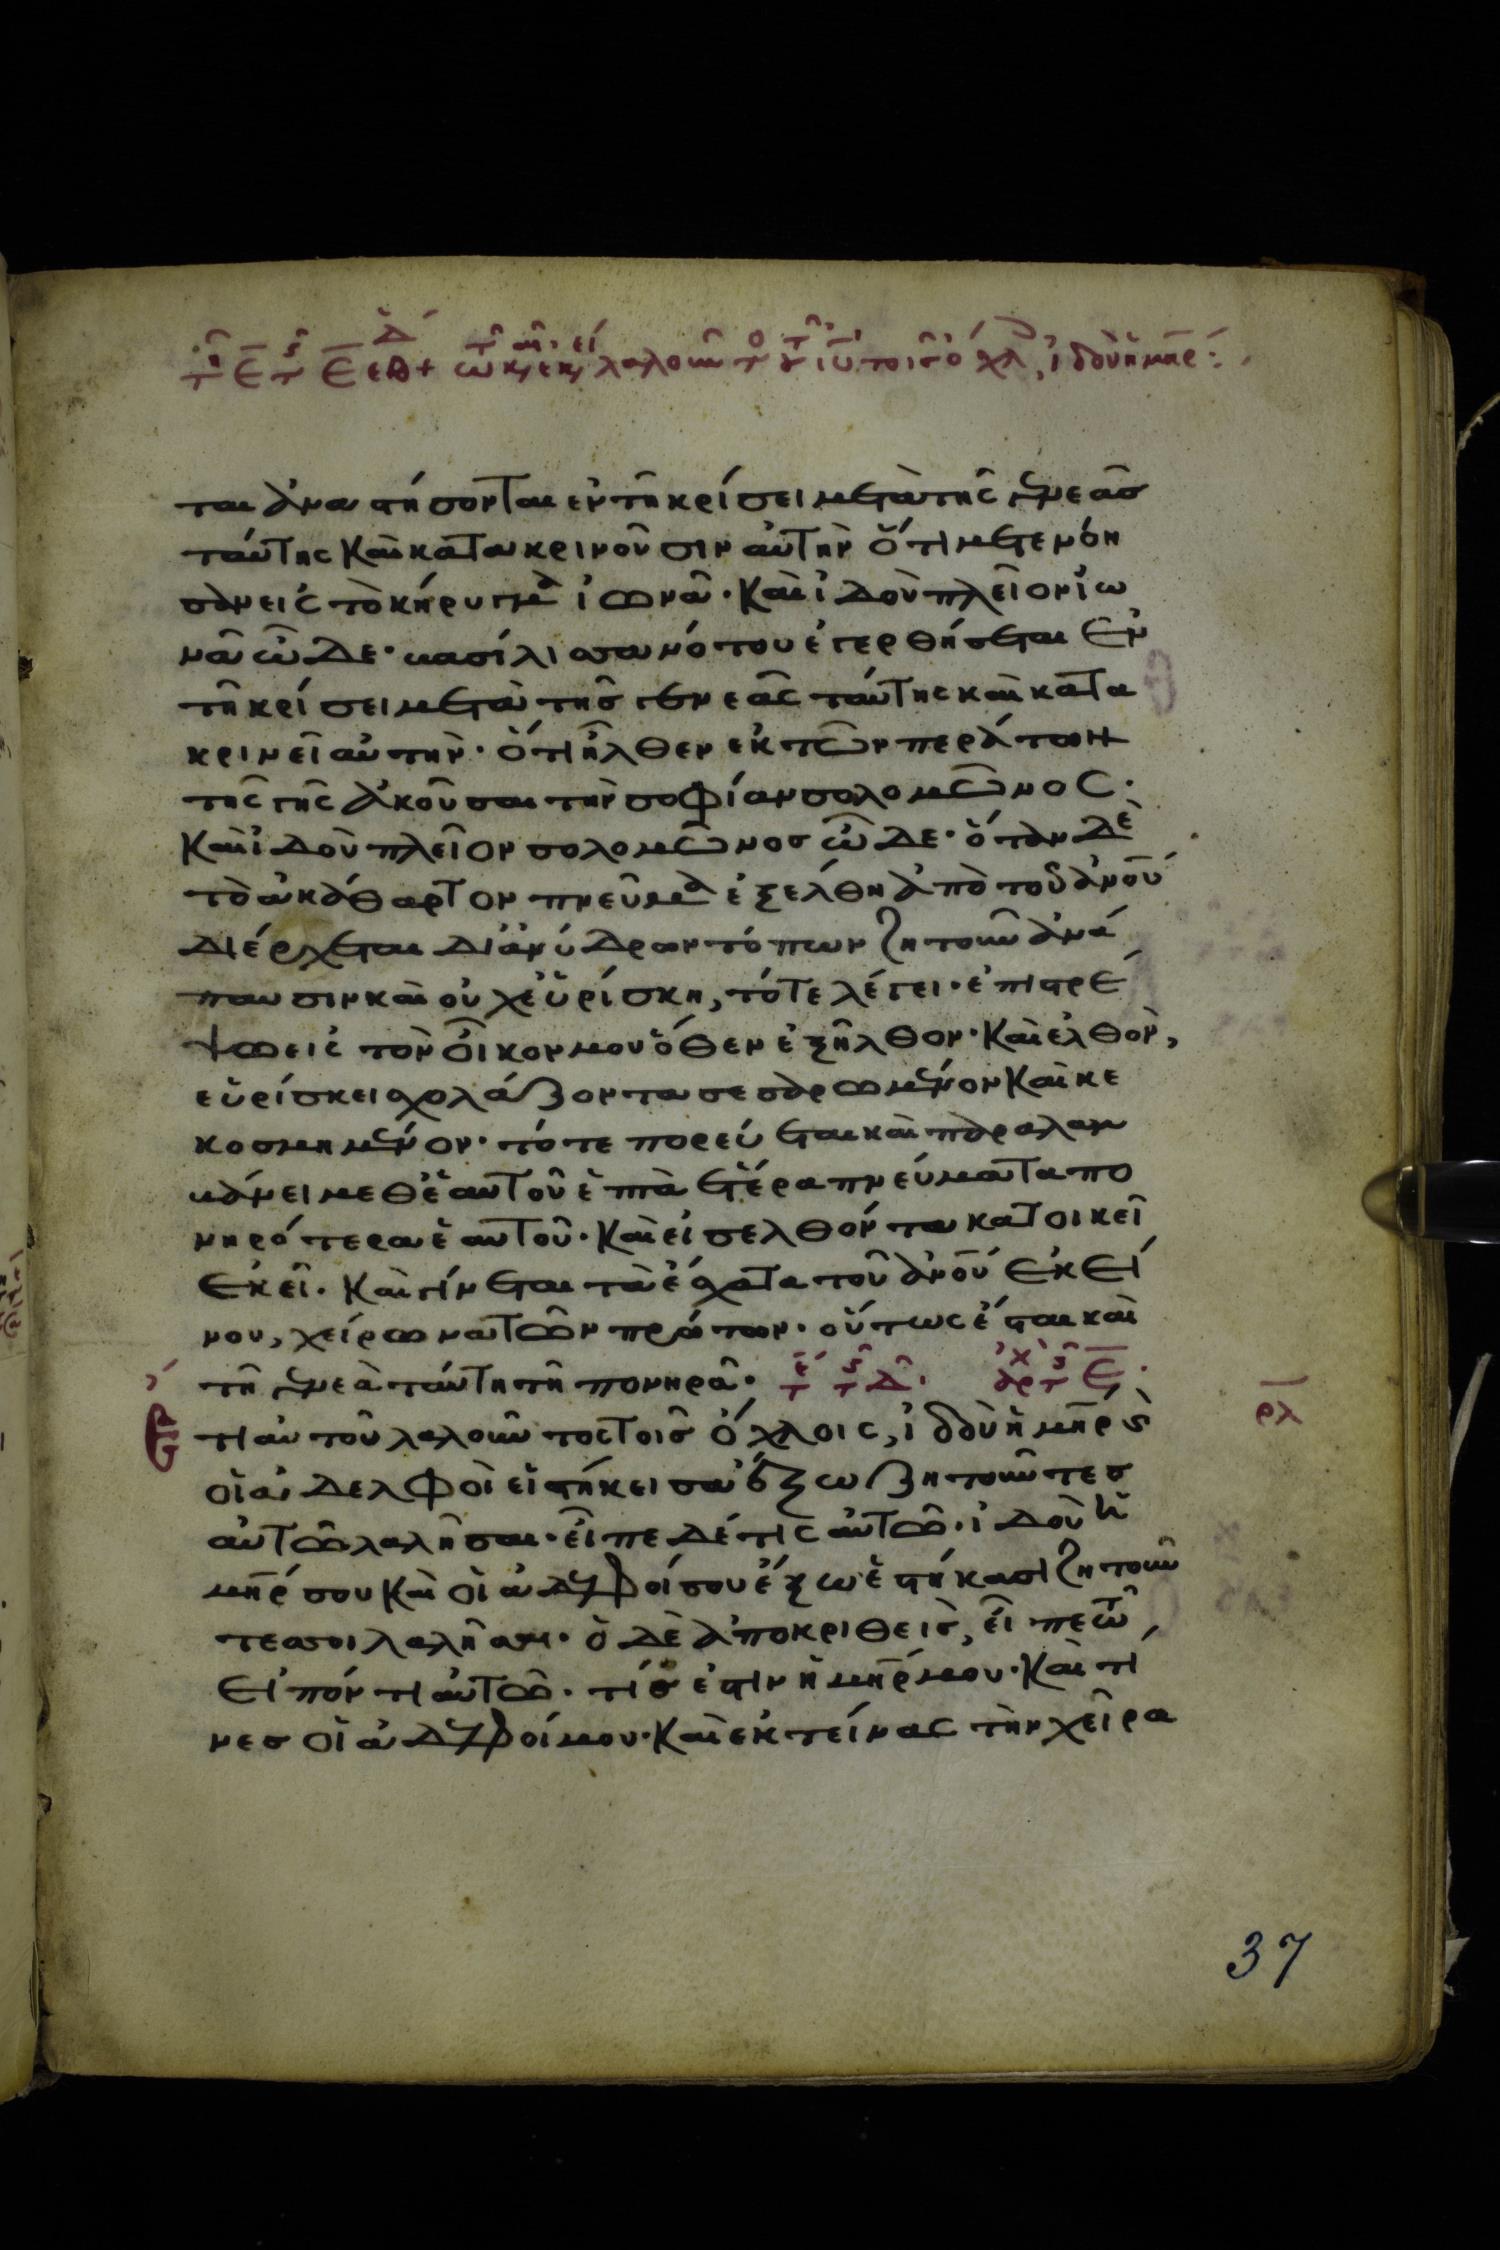 ται ἀναστήσονται ἐν τῆ κρίσει μετὰ τῆς γενεᾶσ
ταύτης καὶ κατακρινοῦσιν αὐτὴν ὅτι μετενόη
σαν εἰς τὸ κήρυγμα ἰωνᾶ· καὶ ἰδοὺ πλεῖον ἰω
νᾶ ὧδε· βασίλισσα νότου ἐγερθήσεται ἐν
τῆ κρίσει μετὰ τῆσ γενεᾶς ταύτης καὶ κατα
κρινεῖ αὐτὴν· ὅτι ἦλθεν ἐκ τῶν περάτων
τῆς γῆς ἀκοῦσαι τὴν σοφίαν σολομῶνος·
καὶ ἰδοὺ πλεῖον σολομῶνοσ ὧδε· ὅταν δὲ
τὸ ἀκάθαρτον πνεῦμα ἐξέλθη ἀπὸ τοῦ ἀνοῦ
διέρχεται δι ἀνύδρων τόπων ζητοῦν ἀνά
παυσιν καὶ οὐχ εὑρίσκη, τότε λέγει· ἐπιστρέ
ψω εἰς τὸν οἶκον μου ὅθεν ἐξῆλθον· καὶ ἐλθὸν,
εὑρίσκει σχολάζοντα σεσαρωμένον καὶ κε
κοσμημένον· τότε πορεύεται καὶ παραλαμ
βάνει μεθ ἑαυτοῦ ἑπτὰ ἕτερα πνεύματα πο
νηρότερα ἑαυτοῦ· καὶ εἰσελθόντα κατοικεῖ
ἐκεῖ· καὶ γίνεται τὰ ἔσχατα τοῦ ἀνοῦ ἐκεί
νου, χείρωνα τῶν πρώτων· οὕτως ἔσται καὶ
τῆ γενεᾶ ταύτη τῆ πονηρᾶ·
ρλ
τι αυτοῦ λαλοῦντος τοῖσ ὄχλοις, ἰδοὺ ἡ μηρ καὶ
οἱ ἀδελφοὶ εἱστήκεισαν ἔξω ζητοῦντεσ
αὐτῶ λαλῆσαι· εἶπε δέ τις αὐτῶ· ἰδοὺ ἡ
μηρ σου καὶ οἱ ἀδελφοί σου ἔξω ἑστήκασι ζητοῦν
τεσ σοι λαλῆσαι· ὁ δὲ ἀποκριθεὶς, εἶπε τῶ
εἰπόντι αὐτῶ· τίσ ἐστιν ἡ μηρ μου· καὶ τί
νεσ οἱ ἀδελφοί μου· καὶ ἐκτείνας τὴν χεῖρα
37